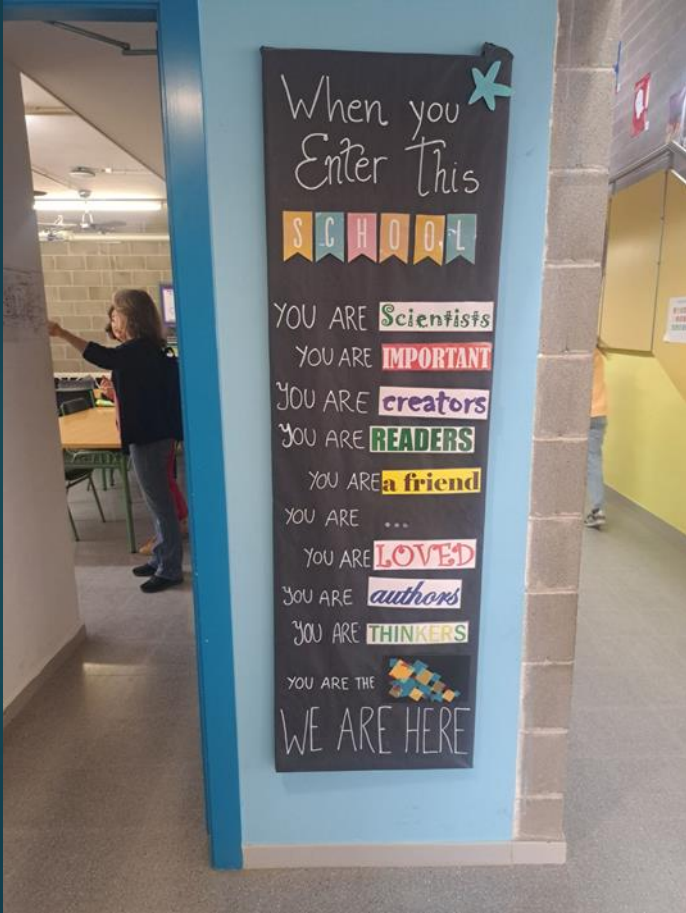 When you
Enter This
SCHOOL
YOU ARE Scientists
YOU ARE IMPORTANT
YOU ARE creators
YOU ARE READERS
YOU ARE a friend
YOU ARE ...
YOU ARE LOVED
YOU ARE authors
YOU ARE THINKERS
YOU ARE THE
WE ARE HERE